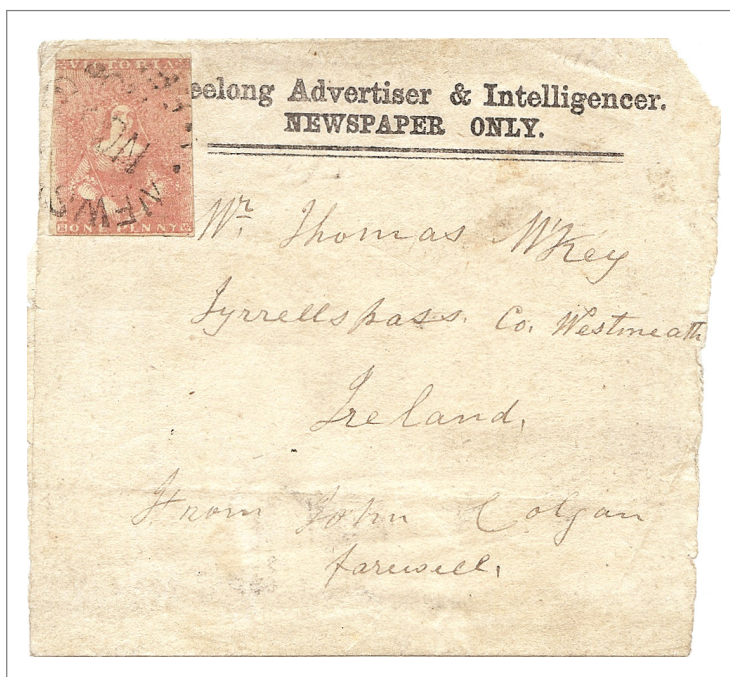 VICTORIA
eelong Advertiser & Intelligencer.
NEWSPAPER ONLY.
ONE PENNY
Mr. Thomas McKey
Tyrrellspass. Co. Westmeath
Ireland,
From John Colgan
farewell.